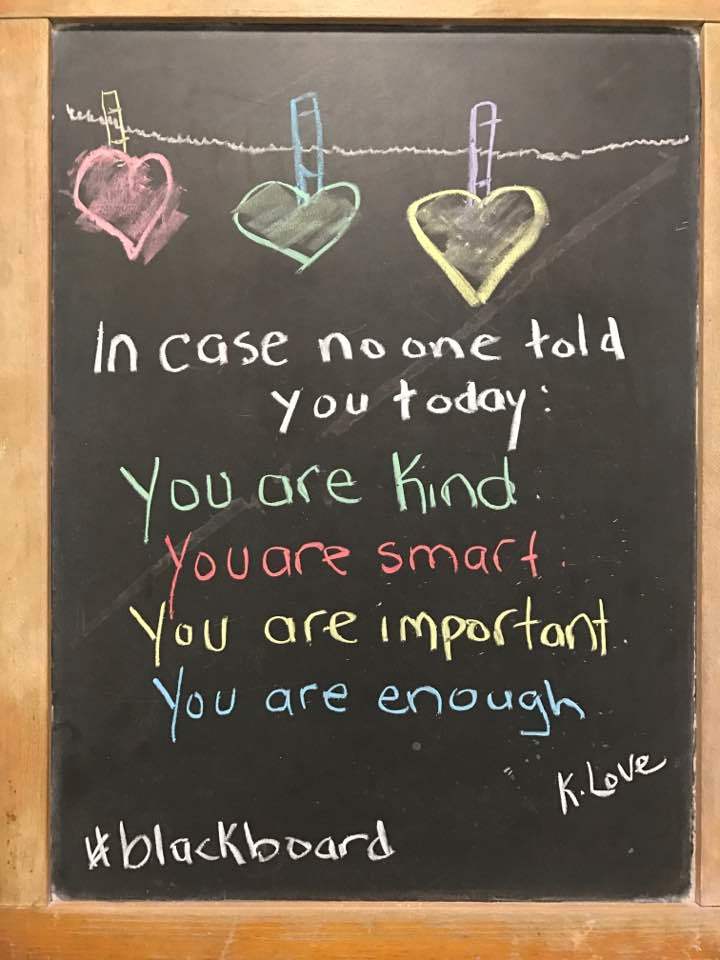 In case no one told
you today:
You are Kind.
You are smart.
You are important.
You are enough
K. Love
#blackboard